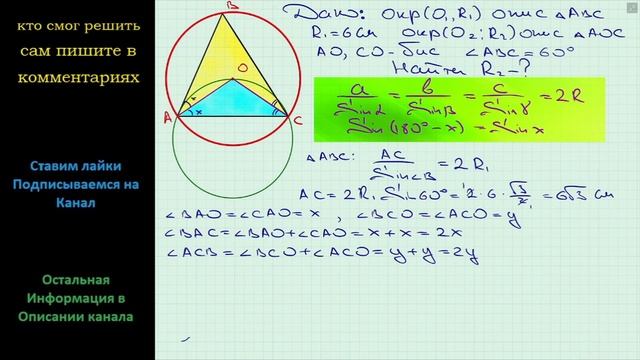 кто смог решить
сам пишите в
комментариях
Ставим лайки
Подписываемся на
Канал
Остальная
Информация в
Описании канала
B
O
A
x
x
C
Дано: Окр(O₁,R₁) опис △ABC
R₁=6см Окр(O₂;R₂) опис △AOC
AO, CO - бис ∠ABC=60°
Найти R₂-?
a/Sinα = b/SinB = c/Sinγ = 2R
Sin(180°-x)=Sinx
△ABC: AC/Sin∠B = 2R₁
AC=2R₁Sin60°=2·6·√3/2=6√3 см
∠BAO=∠CAO=x , ∠BCO=∠ACO=y
∠BAC=∠BAO+∠CAO=x+x=2x
∠ACB=∠BCO+∠ACO=y+y=2y